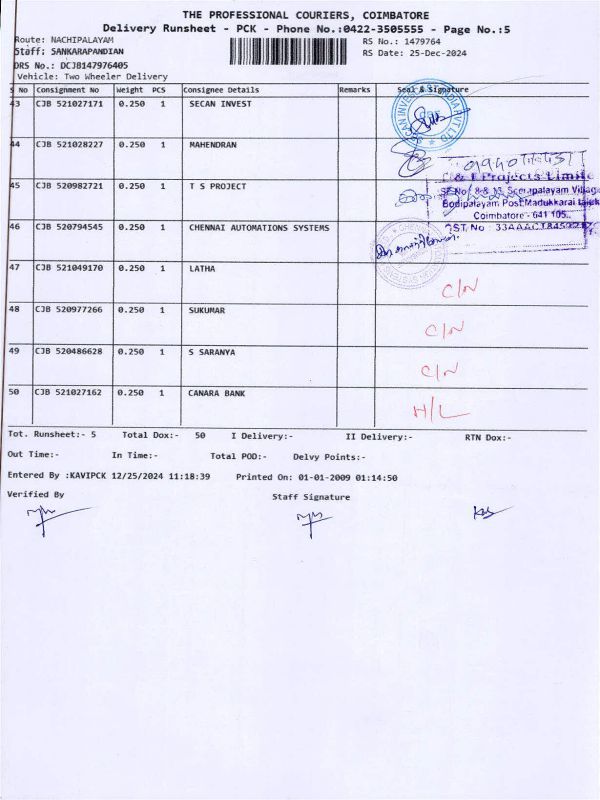 THE PROFESSIONAL COURIERS, COIMBATORE
Delivery Runsheet - PCK - Phone No.:0422-3505555 - Page No.:5
Route: NACHIPALAYAM RS No.: 1479764
Staff: SANKARAPANDIAN RS Date: 25-Dec-2024
DRS No.: DCJB147976405
Vehicle: Two Wheeler Delivery
S No Consignment No Weight PCS Consignee Details Remarks Seal & Signature
43 CJB 521027171 0.250 1 SECAN INVEST
44 CJB 521028227 0.250 1 MAHENDRAN
45 CJB 520982721 0.250 1 T S PROJECT
Projects Limite
Bodipalayam Post, Madukkarai taluk
Coimbatore - 641 105.
46 CJB 520794545 0.250 1 CHENNAI AUTOMATIONS SYSTEMS
47 CJB 521049170 0.250 1 LATHA C/N
48 CJB 520977266 0.250 1 SUKUMAR C/N
49 CJB 520486628 0.250 1 S SARANYA C/N
50 CJB 521027162 0.250 1 CANARA BANK H/L
Tot. Runsheet:- 5 Total Dox:- 50 I Delivery:- II Delivery:- RTN Dox:-
Out Time:- In Time:- Total POD:- Delvy Points:-
Entered By :KAVIPCK 12/25/2024 11:18:39 Printed On: 01-01-2009 01:14:50
Verified By Staff Signature